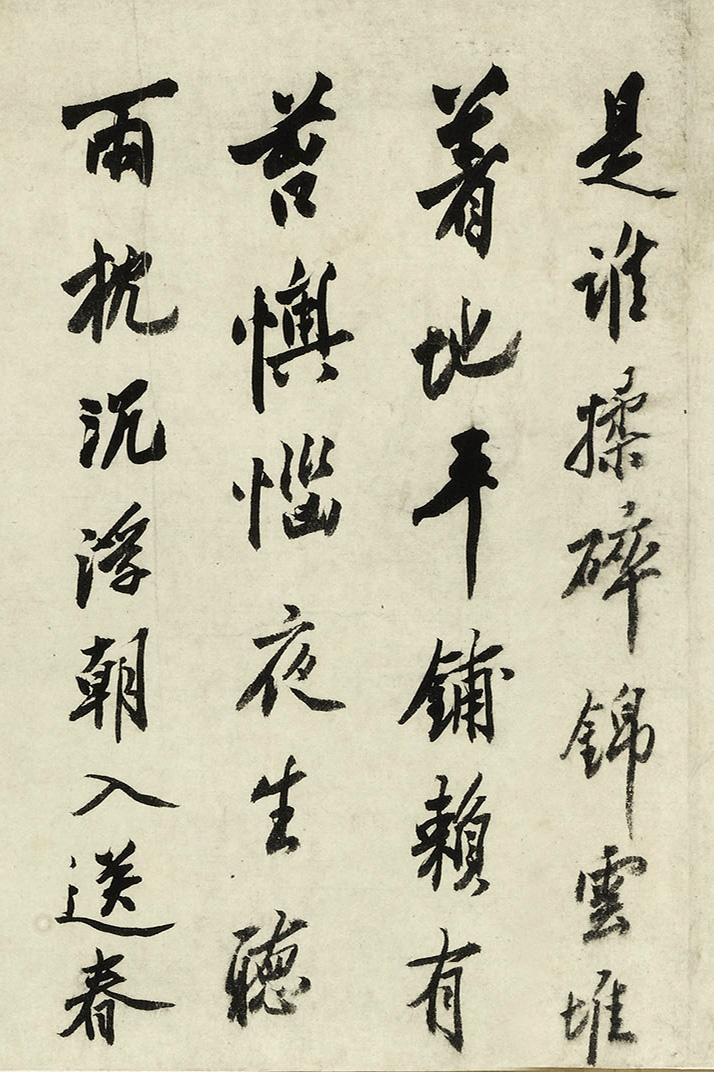 是誰揉碎錦雲堆
着地平鋪賴有
苔懊惱夜生聽
雨枕沉浮朝入送春